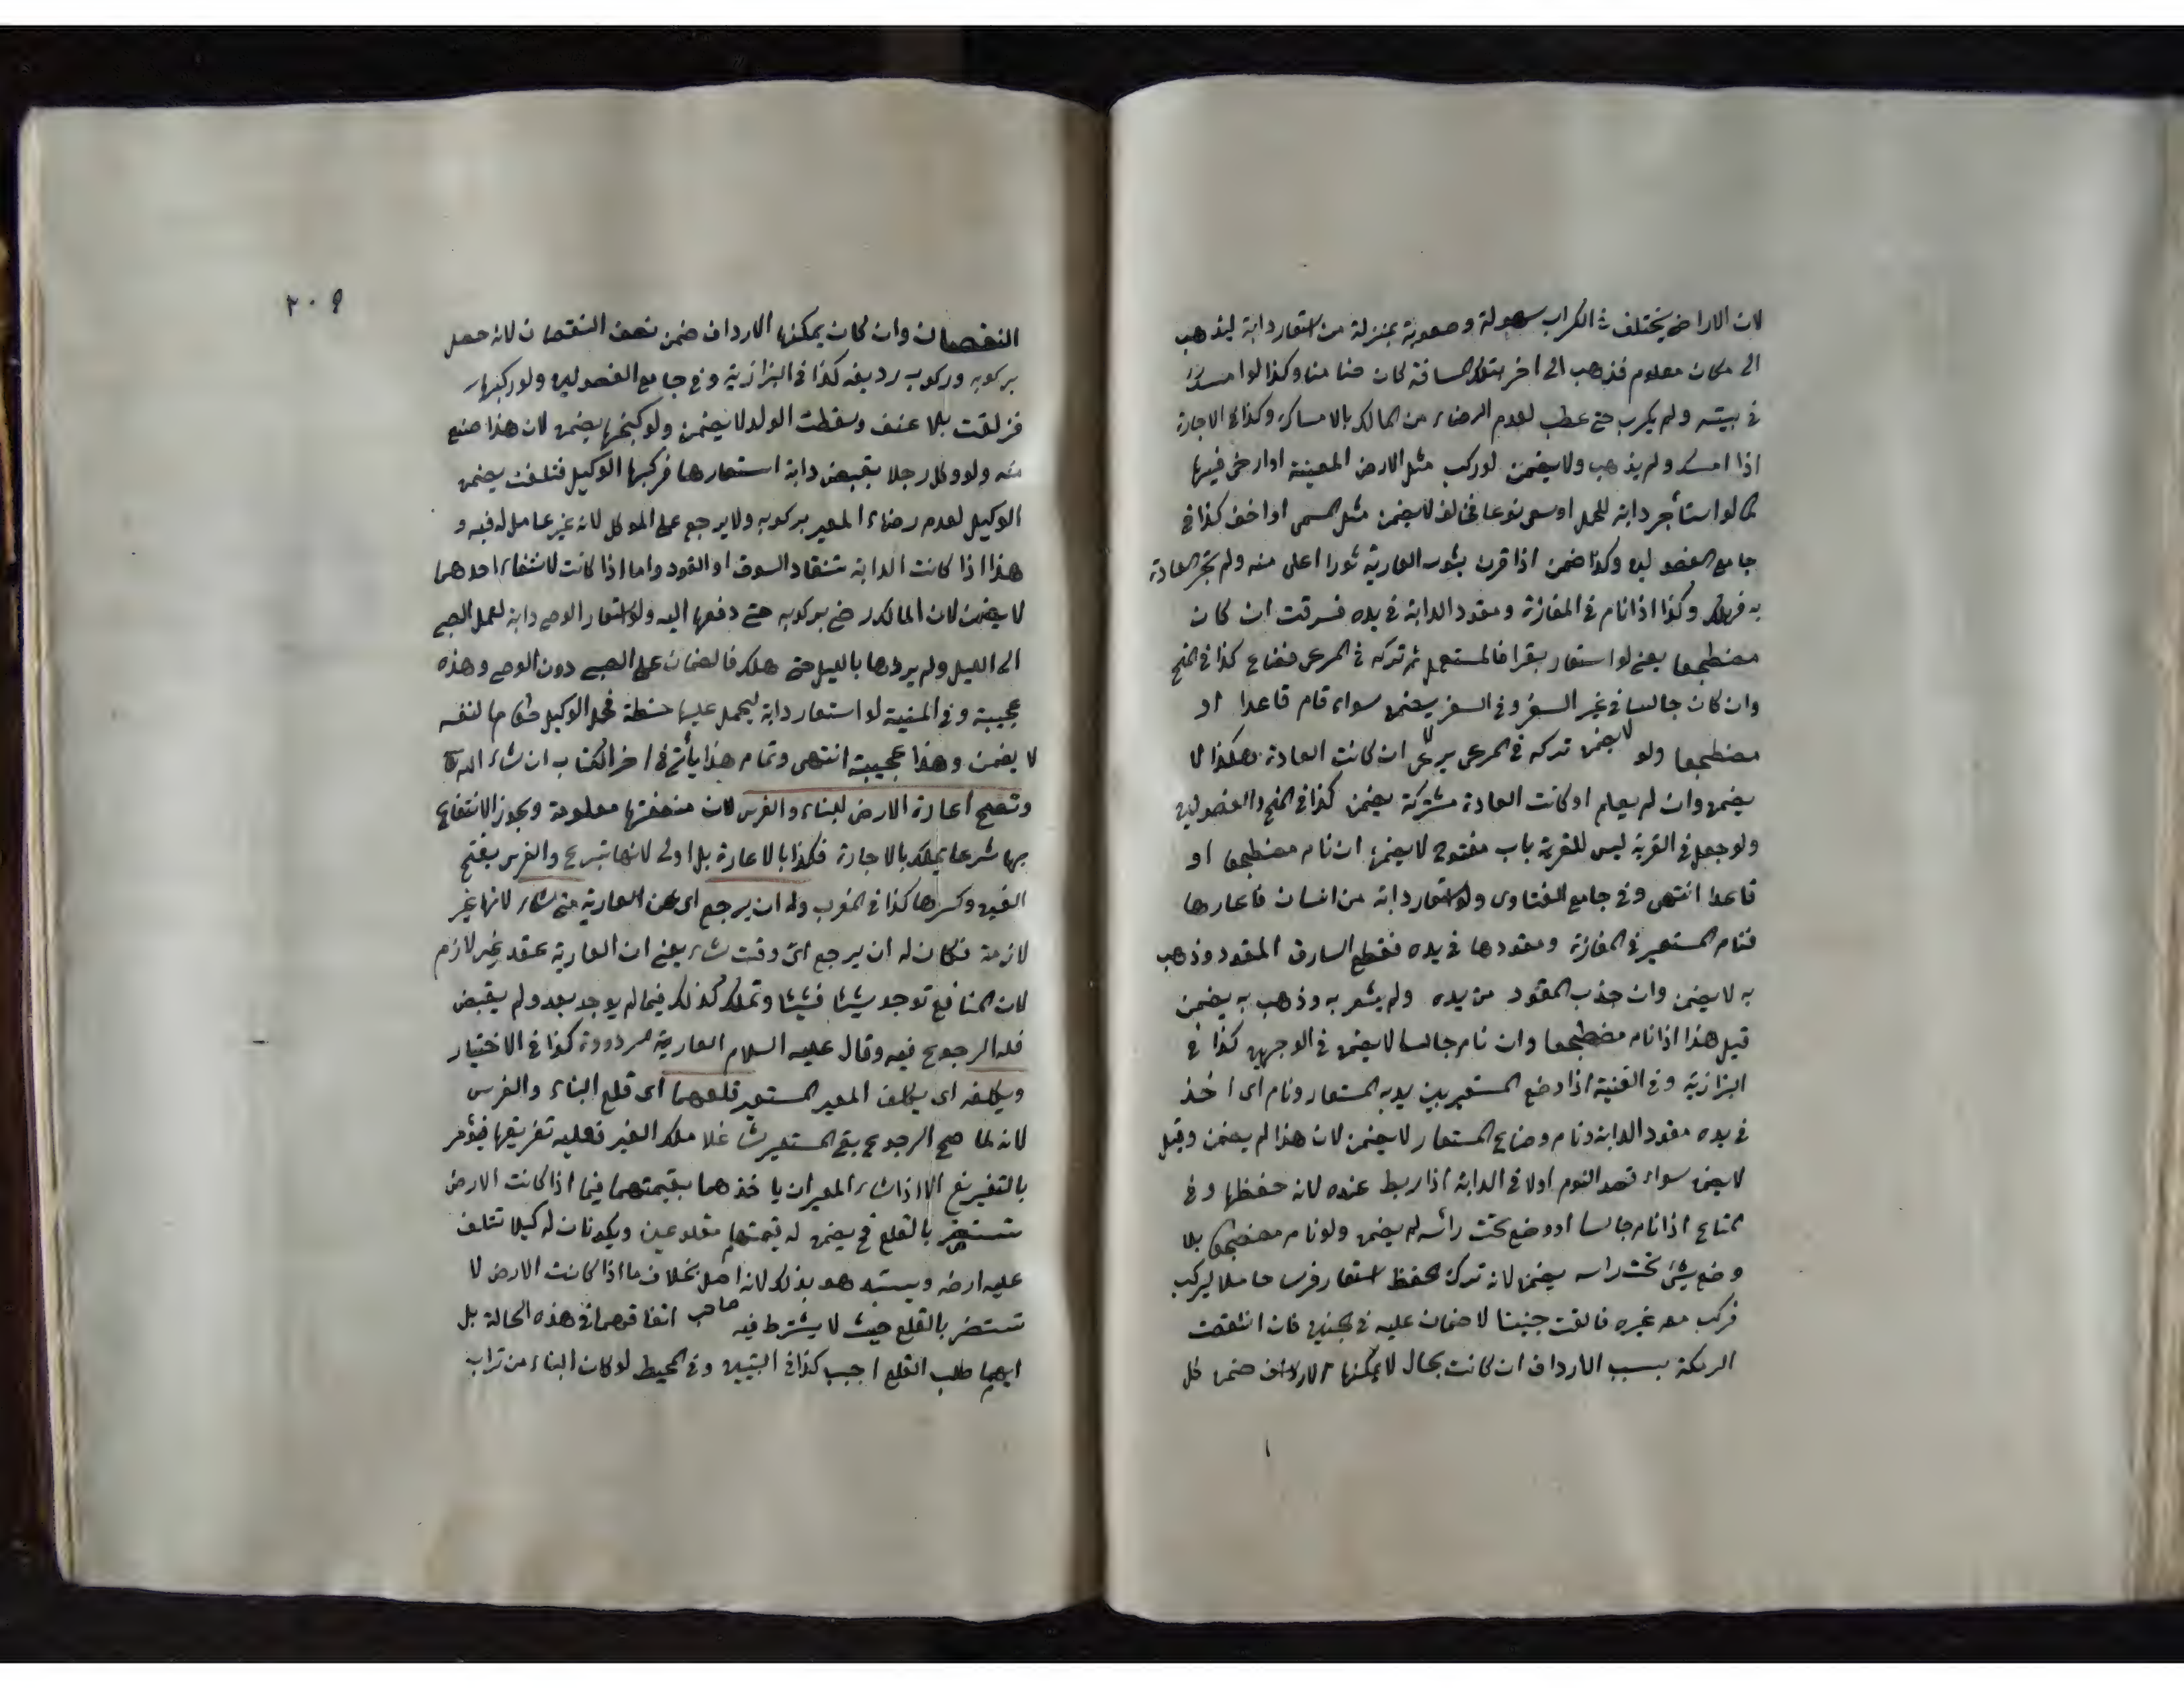 لان الاراضى يختلف فى الكراب سهولة وصعوبة بمنزلة من استعار دابة ليذهب
الى مكان معلوم فذهب الى اخر بتلك المسافة كان ضامنا وكذا لو امسك
فى بيته ولم يكرب حتى عطب لعدم الرضاء من المالك بالامساك وكذا فى الاجارة
اذا امسك ولم يذهب ولا يضمن لو كرب مثل الارض المعينة او ارخى فيها
كما لو استأجر دابة للحمل وسمى نوعا فخالف لا يضمن مثل المسمى او اخف كذا فى
جامع الفصولين وكذا ضمن اذا قرن بثور العارية ثورا اعلى منه ولم تجر العادة
به فهلك وكذا اذا نام فى المفازة ومقود الدابة فى يده فسرقت ان كان
مضطجعا يعنى لو استعار بقرا فاستعمل ثم تركه فى المرعى فضاع كذا فى المنح
وان كان جالسا فى غير السفر وفى السفر يضمن سواء قام قاعدا او
مضطجعا ولو لا يضمن تركه فى المرعى يرعى ان كانت العادة هكذا لا
يضمن وان لم يعلم او كانت العادة مشتركة يضمن كذا فى المنح والفصولين
ولو جعل فى القرية ليس للقرية باب مفتوح لا يضمن ان نام مضطجعا او
قاعدا انتهى وفى جامع الفتاوى ولو استعار دابة من انسان فاعارها
فنام المستعير فى المفازة ومقودها فى يده فقطع السارق المقود وذهب
به لا يضمن وان جذب المقود من يده ولم يشعر به وذهب به يضمن
قيل هذا اذا نام مضطجعا وان نام جالسا لا يضمن فى الوجهين كذا فى
البزازية وفى القنية اذا وضع المستعير بين يديه المستعار ونام اى اخذ
فى يده مقود الدابة ونام وضاع المستعار لا يضمن لان هذا لم يضمن وقيل
لا يضمن سواء قصد النوم اولا فى الدابة اذا ربط عنده لانه حفظها وفى
المتاع اذا نام جالسا او وضع تحت رأسه لم يضمن ولو نام مضطجعا بلا
وضع شئ تحت راسه يضمن لانه ترك الحفظ استعار فرسا حاملا ليركب
فركب معه غيره فالقت جنينا لا ضمان عليه فى الجنين فان انتقصت
الرمكة بسبب الارداف ان كانت بحال لا يمكنها الارداف ضمن كل
٢٠٩
النقصان وان كان يمكنها الارداف ضمن نصف النقصان لانه حصل
بركوبه وركوب رديفه كذا فى البزازية وفى جامع الفصولين ولو ركبها
فزلقت بلا عنف وسقطت الولد لا يضمن ولو كبحها يضمن لان هذا صنع
منه ولو وكل رجلا بقبض دابة استعارها فركبها الوكيل فتلفت يضمن
الوكيل لعدم رضاء المعير بركوبه ولا يرجع على الموكل لانه غير عامل له فيه و
هذا اذا كانت الدابة تنقاد السوق او القود واما اذا كانت لا تنقاد احدهما
لا يضمن لان المالك رضى بركوبه حتى دفعها اليه ولو استعار الوصى دابة لعمل الصبى
الى الليل ولم يردها بالليل حتى هلك فالضمان على الصبى دون الوصى وهذه
عجيبة وفى المنية لو استعار دابة ليحمل عليها حنطة فحمل الوكيل طعاما لنفسه
لا يضمن وهذا عجيبة انتهى وتمام هذا يأتى فى اخر الكتاب ان شاء الله تعالى
وتصح اعارة الارض للبناء والغرس لان منفعتها معلومة ويجوز الانتفاع
بها شرعا يملك بالاجارة فكذا بالاعارة بل اولى لانها تبرع والغرس بفتح
الغين وكسرها كذا فى المغرب وله ان يرجع اى عن العارية متى شاء لانها غير
لازمة فكان له ان يرجع اى وقت شاء يعنى ان العارية عقد غير لازم
لان المنافع توجد شيئا فشيئا وتملك كذلك فيما لم يوجد بعد ولم يقبض
فله الرجوع فيه وقال عليه السلام العارية مردودة كذا فى الاختيار
ويكلفه اى يكلف المعير المستعير قلعهما اى قلع البناء والغرس
لانه لما صح الرجوع بقى المستعير شاغلا ملك الغير فعليه تفريغها فيؤمر
بالتفريغ الا اذا شاء المعير ان ياخذهما بقيمتهما فيما اذا كانت الارض
تستضر بالقلع فح يضمن له قيمتهما مقلوعين ويكونان له كيلا تتلف
عليه ارضه ويستبد هو بذلك لانه اصل بخلاف ما اذا كانت الارض لا
تستضر بالقلع حيث لا يشترط فيه صاحب اتفاقهما فى هذه الحالة بل
ايهما طلب القلع اجيب كذا فى التبيين وفى المحيط لو كان البناء من تراب